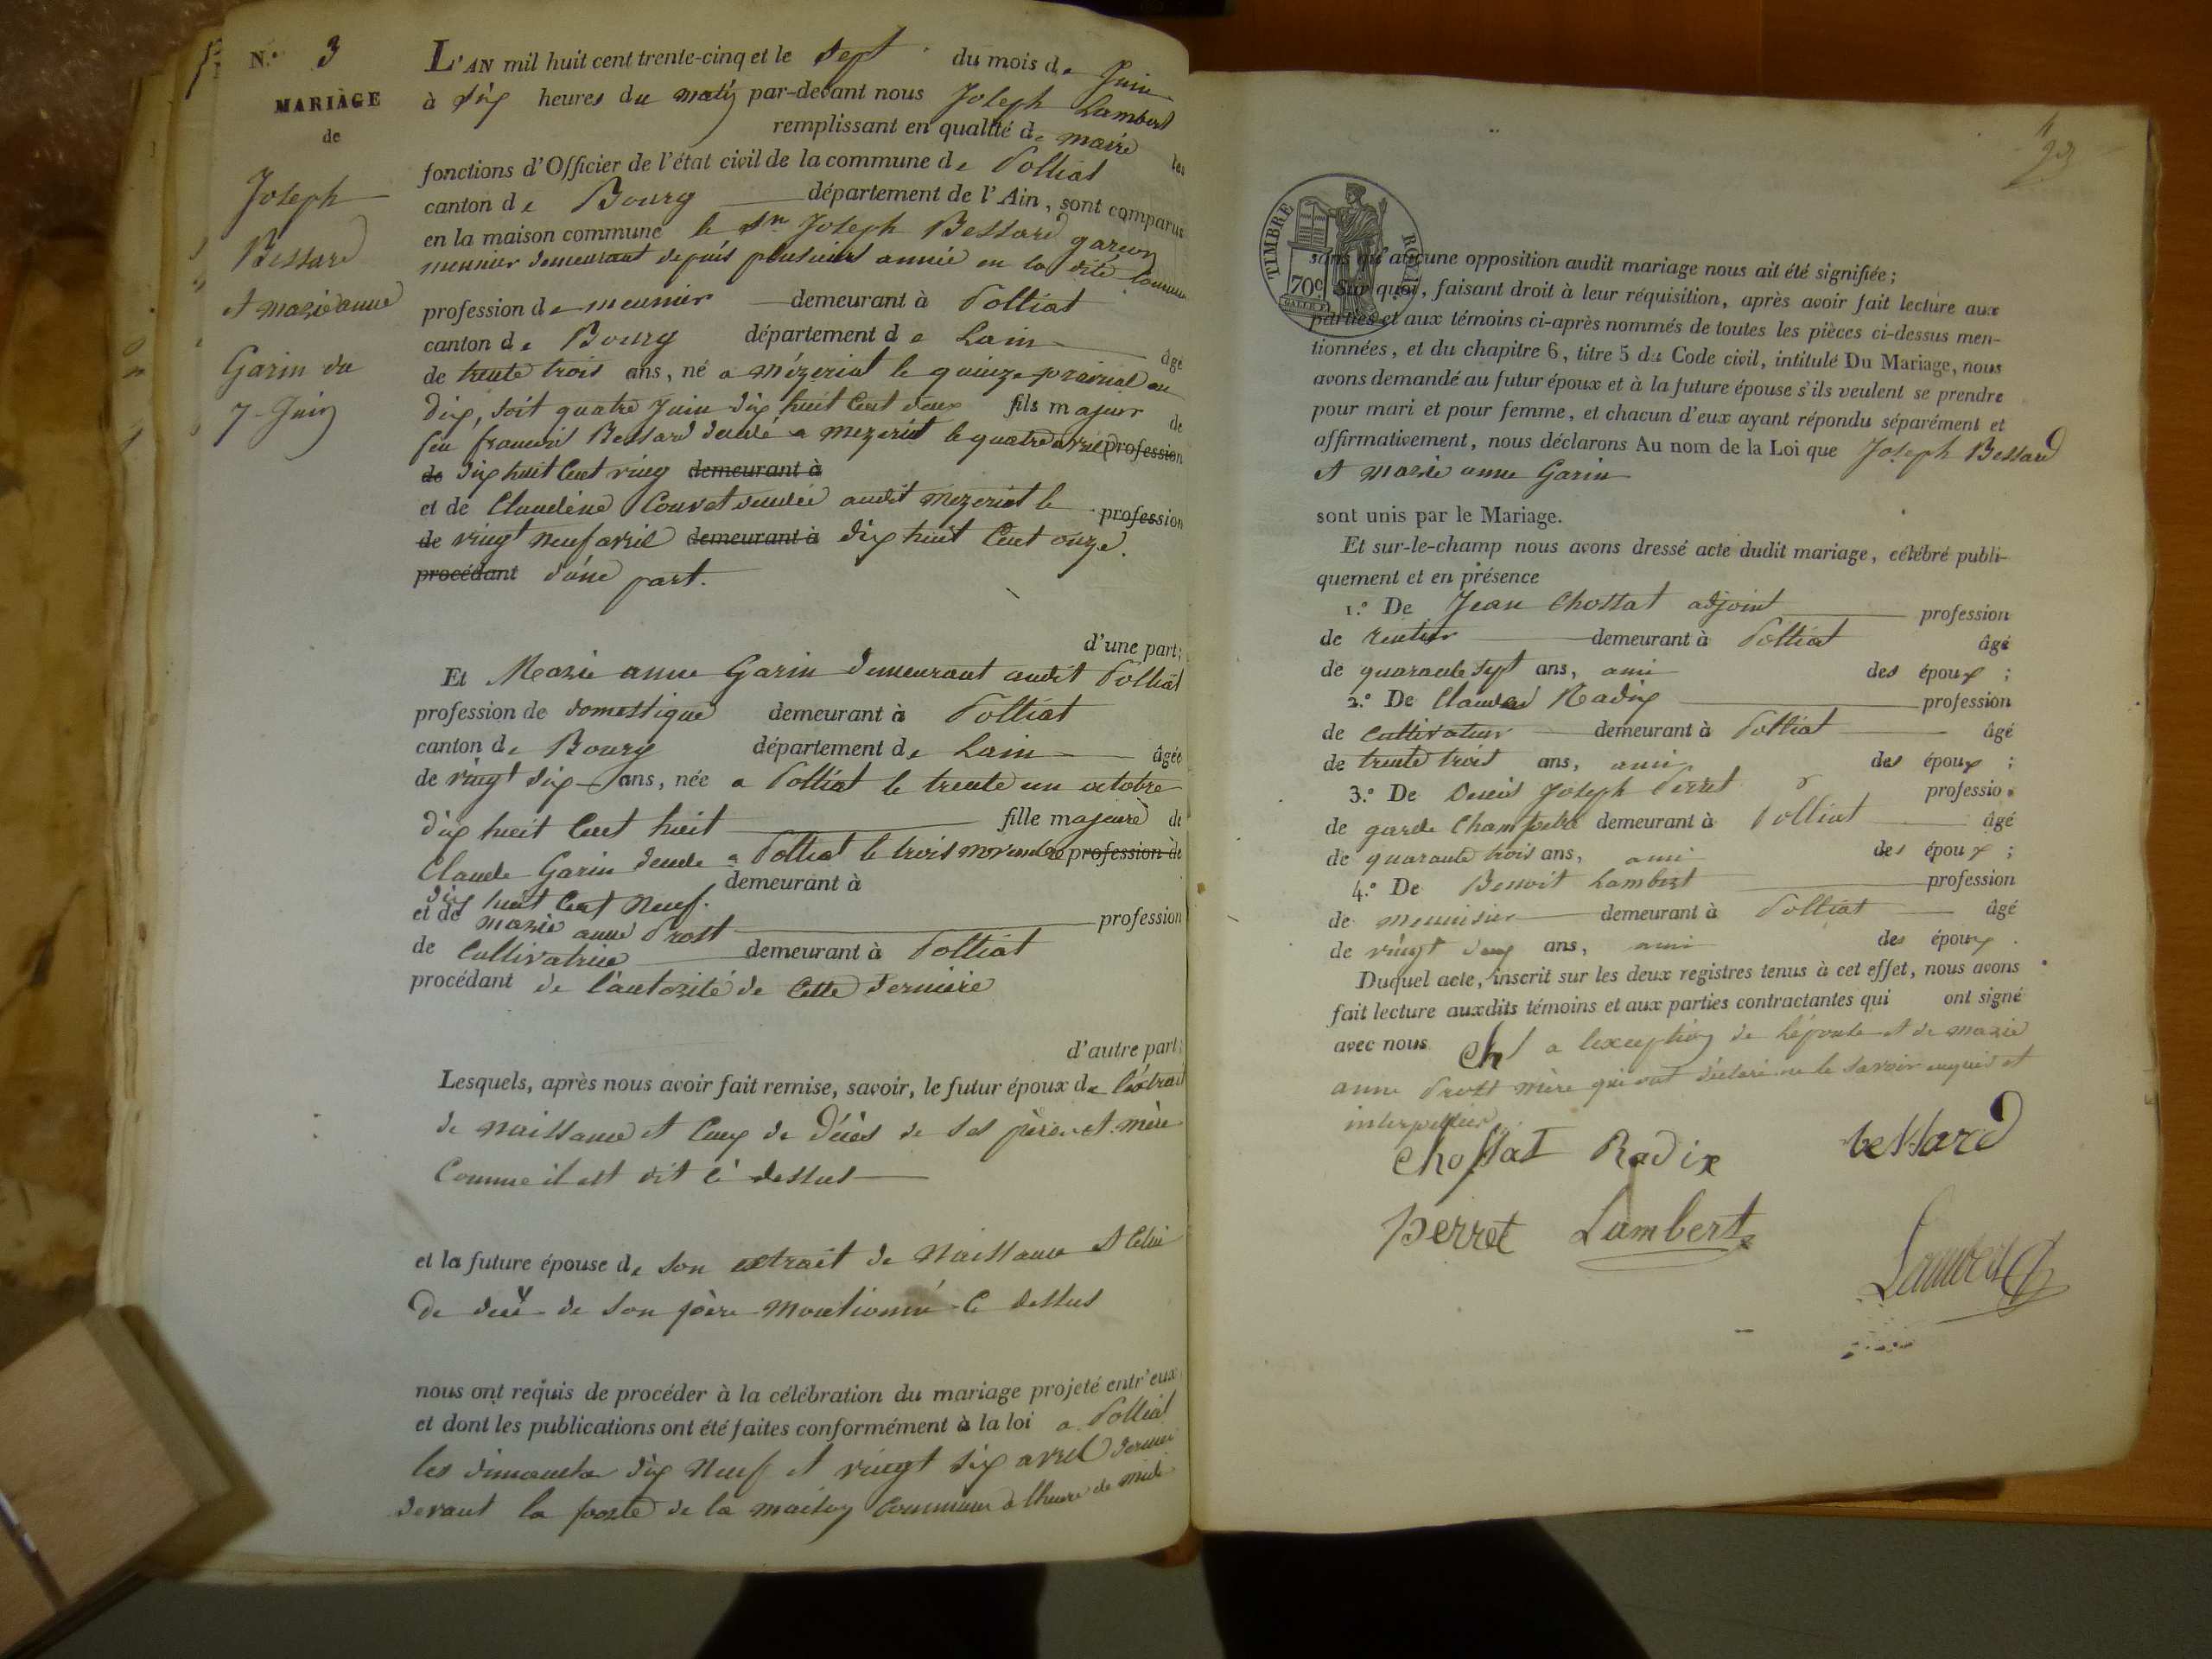 N.º 3
MARIAGE
de
Joseph
Bessard
et marie anne
Garin du
7 Juin
L'AN mil huit cent trente-cinq et le Sept du mois de Juin
à dix heures du matin par-devant nous Joseph Lambert
remplissant en qualité de maire les
fonctions d'Officier de l'état civil de la commune de Polliat
canton de Bourg département de l'Ain, sont comparus
en la maison commune le Sr Joseph Bessard garçon
meunier demeurant depuis plusieurs année en la dite Commune
profession de meunier demeurant à Polliat
canton de Bourg département de Lain âgé
de trente trois ans, né a mézeriat le quinze prairial an
dix, soit quatre Juin dix huit Cent deux fils majeur de
feu francois Bessard décédé a mezeriat le quatre avril profession
de dix huit Cent vingt demeurant à
et de Claudine Couvat décédée audit mezeriat le profession
de vingt neuf avril demeurant à dix huit Cent onze.
procédant d'une part.
d'une part;
Et Marie anne Garin demeurant audit Polliat
profession de domestique demeurant à Polliat
canton de Bourg département de Lain âgée
de vingt six ans, née a Polliat le trente un octobre
dix huit Cent huit fille majeure de
Claude Garin décédé a Polliat le trois novembre profession de
dix huit Cent neuf. demeurant à
et de marie anne Prost profession
de Cultivatrice demeurant à Polliat
procédant de l'autorité de Cette dernière
d'autre part;
Lesquels, après nous avoir fait remise, savoir, le futur époux de l'extrait
de naissance et Ceux de décès de ses père et mère
Comme il est dit ci dessus
et la future épouse de son extrait de naissance et Celui
de décès de son père mentionné ci dessus
nous ont requis de procéder à la célébration du mariage projeté entr'eux
et dont les publications ont été faites conformément à la loi a Polliat
les dimanche dix neuf et vingt six avril dernier
devant la porte de la maison Commune a lheure de midi
TIMBRE ROYAL
70c
sans qu'aucune opposition audit mariage nous ait été signifiée;
Sur quoi, faisant droit à leur réquisition, après avoir fait lecture aux
parties et aux témoins ci-après nommés de toutes les pièces ci-dessus men-
tionnées, et du chapitre 6, titre 5 du Code civil, intitulé Du Mariage, nous
avons demandé au futur époux et à la future épouse s'ils veulent se prendre
pour mari et pour femme, et chacun d'eux ayant répondu séparément et
affirmativement, nous déclarons Au nom de la Loi que Joseph Bessard
et marie anne Garin
sont unis par le Mariage.
Et sur-le-champ nous avons dressé acte dudit mariage, célébré publi-
quement et en présence
1.º De Jean Chossat adjoint profession
de rentier demeurant à Polliat âgé
de quarante sept ans, ami des époux ;
2.º De Claude Radix profession
de Cultivateur demeurant à Polliat âgé
de trente trois ans, ami des époux ;
3.º De Denis Joseph Perret profession
de garde Champetre demeurant à Polliat âgé
de quarante trois ans, ami des époux ;
4.º De Benoit Lambert profession
de menuisier demeurant à Polliat âgé
de vingt deux ans, ami des époux .
Duquel acte, inscrit sur les deux registres tenus à cet effet, nous avons
fait lecture auxdits témoins et aux parties contractantes qui ont signé
avec nous a lexception de lépouse et de marie
anne Prost mère qui ont déclaré ne le savoir enquis et
interpellées
Chossat Radix bessard
perret Lambert
Lambert